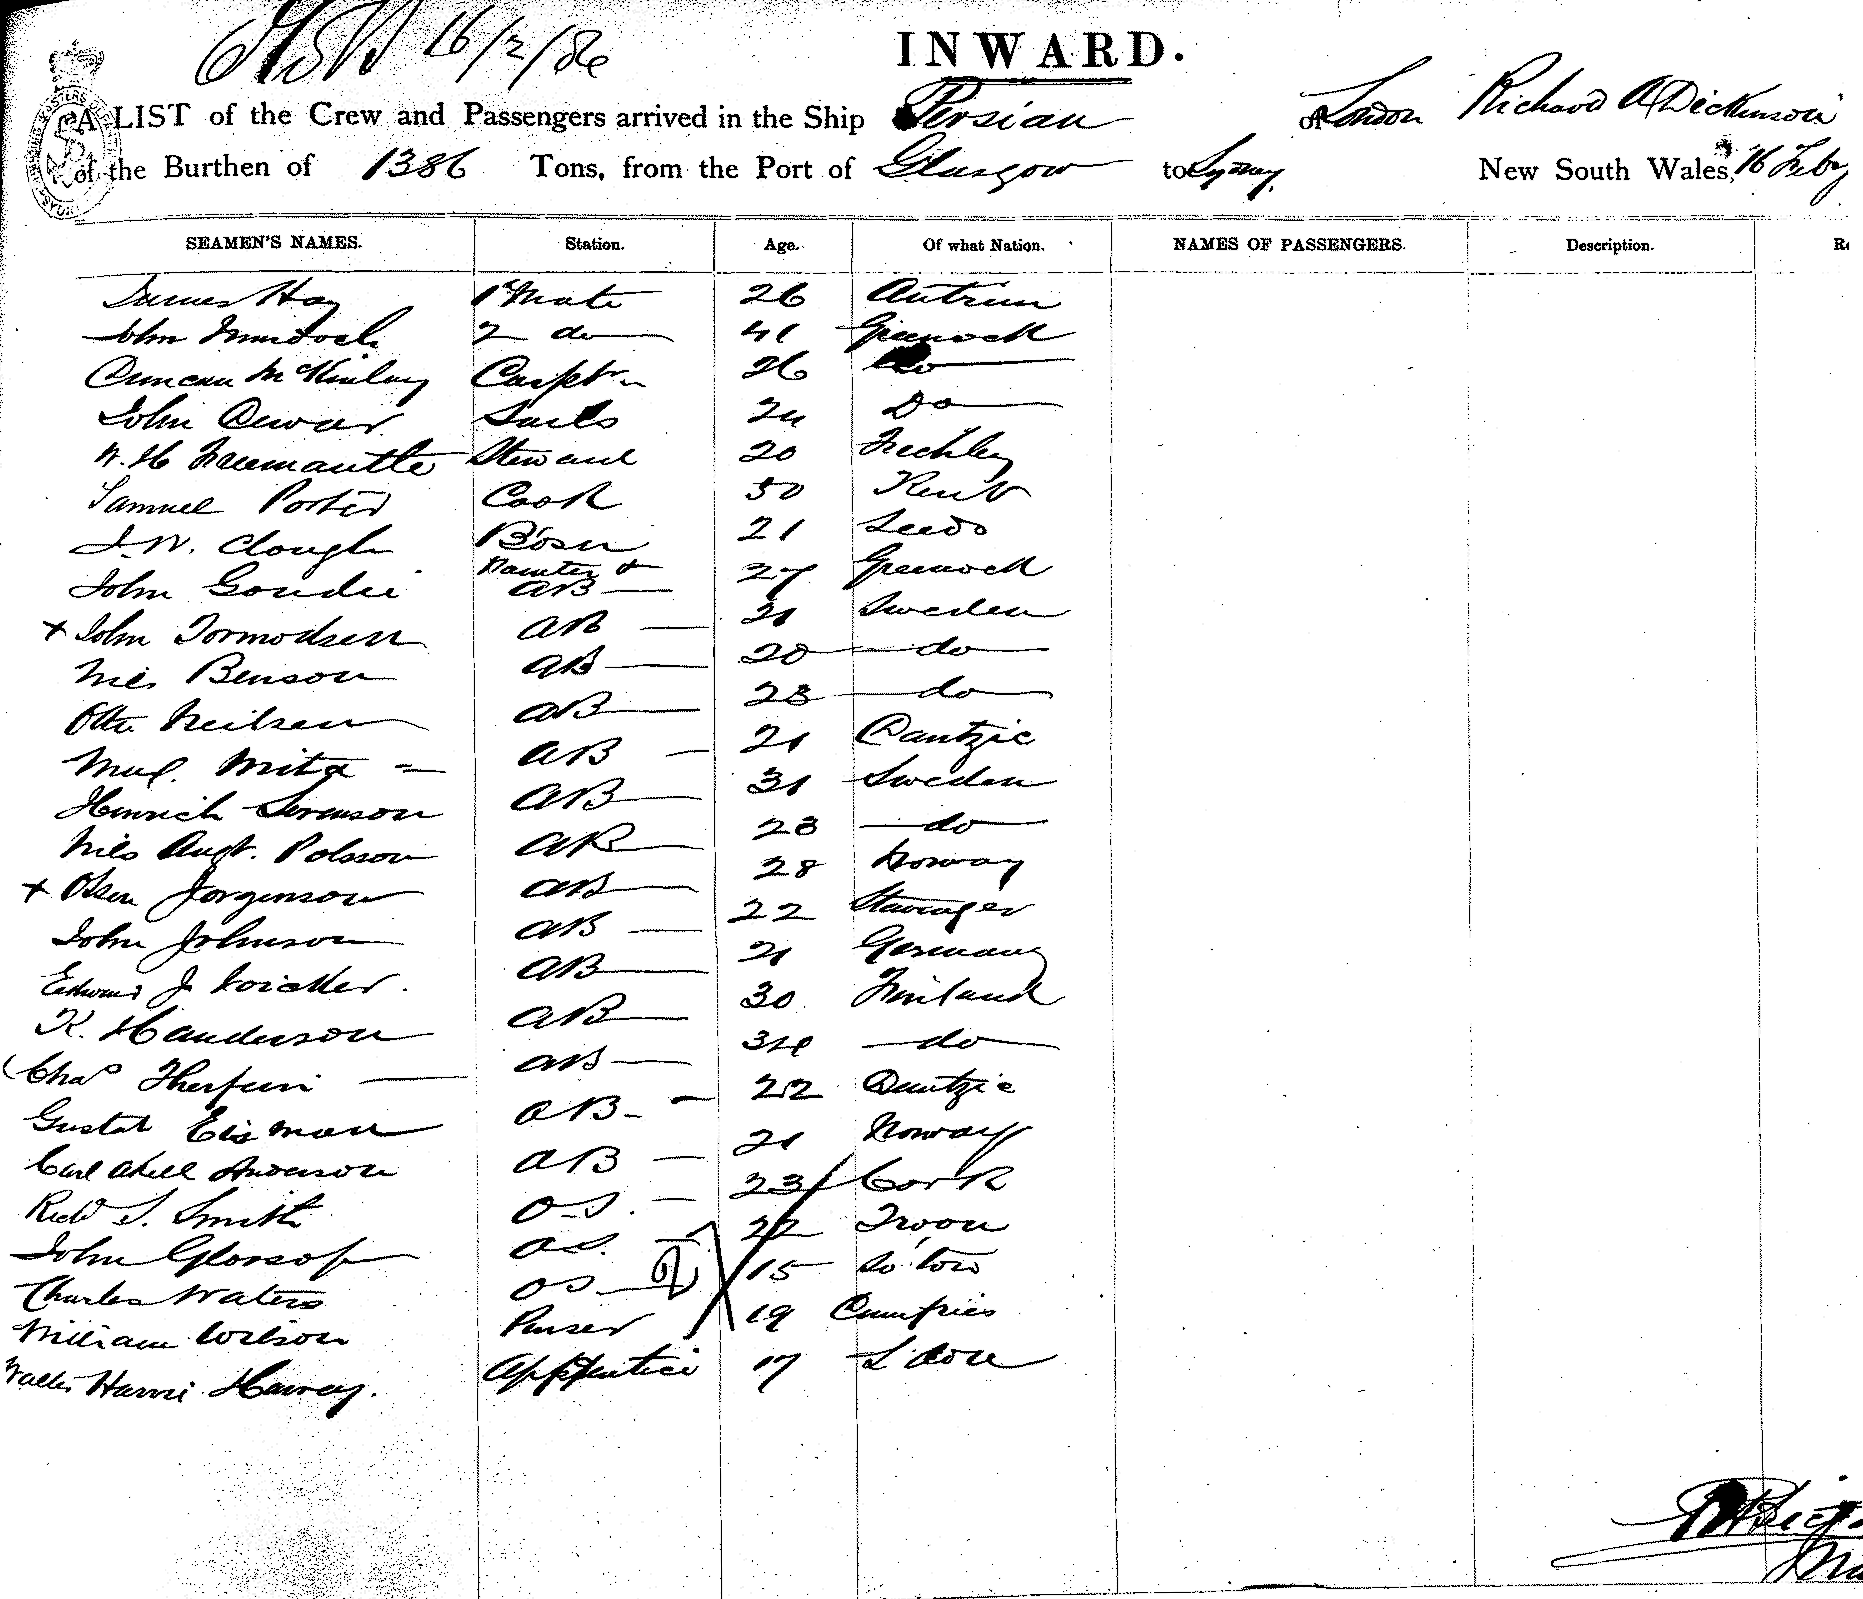 16/2/86
INWARD.
A LIST of the Crew and Passengers arrived in the Ship Persian of London Richard A Dickinson
of the Burthen of 1386 Tons, from the Port of Glasgow to Sydney, New South Wales, 16 Feby
SEAMEN'S NAMES. Station. Age. Of what Nation. NAMES OF PASSENGERS. Description.
James Hay 1st Mate 26 Antrim
John Murdoch 2 do 41 Greenock
Duncan McKinlay Carptr 26 Do
John Dewar Sails 24 Do
W. H. Freemantle Steward 20
Samuel Porter Cook 50 Kent
J. W. Clough Bosn 21 Leeds
John Goudie Painter & AB 27 Greenock
+ John Tormodsen AB 21 Sweden
Nils Benson AB 20 do
Otto Neilsen AB 28 do
AB 21 Dantzic
Heinrich Sorenson AB 31 Sweden
Nils Augt. Polsson AB 28 do
+ Olsen Jorgenson AB 28 Norway
John Johnson AB 22 Stavanger
Edward J AB 21 Germany
K. Handerson AB 30 Finland
Chas AB 34 do
Gustav Eisman AB 22 Dantzic
Carl Axell Anderson AB 21 Norway
Richd S. Smith OS. 23 Cork
John Glossop OS. 22 Troon
Charles Waters OS 15
William Wilson Purser 19 Dumfries
Walter Harris Harvey. Apprentice 17